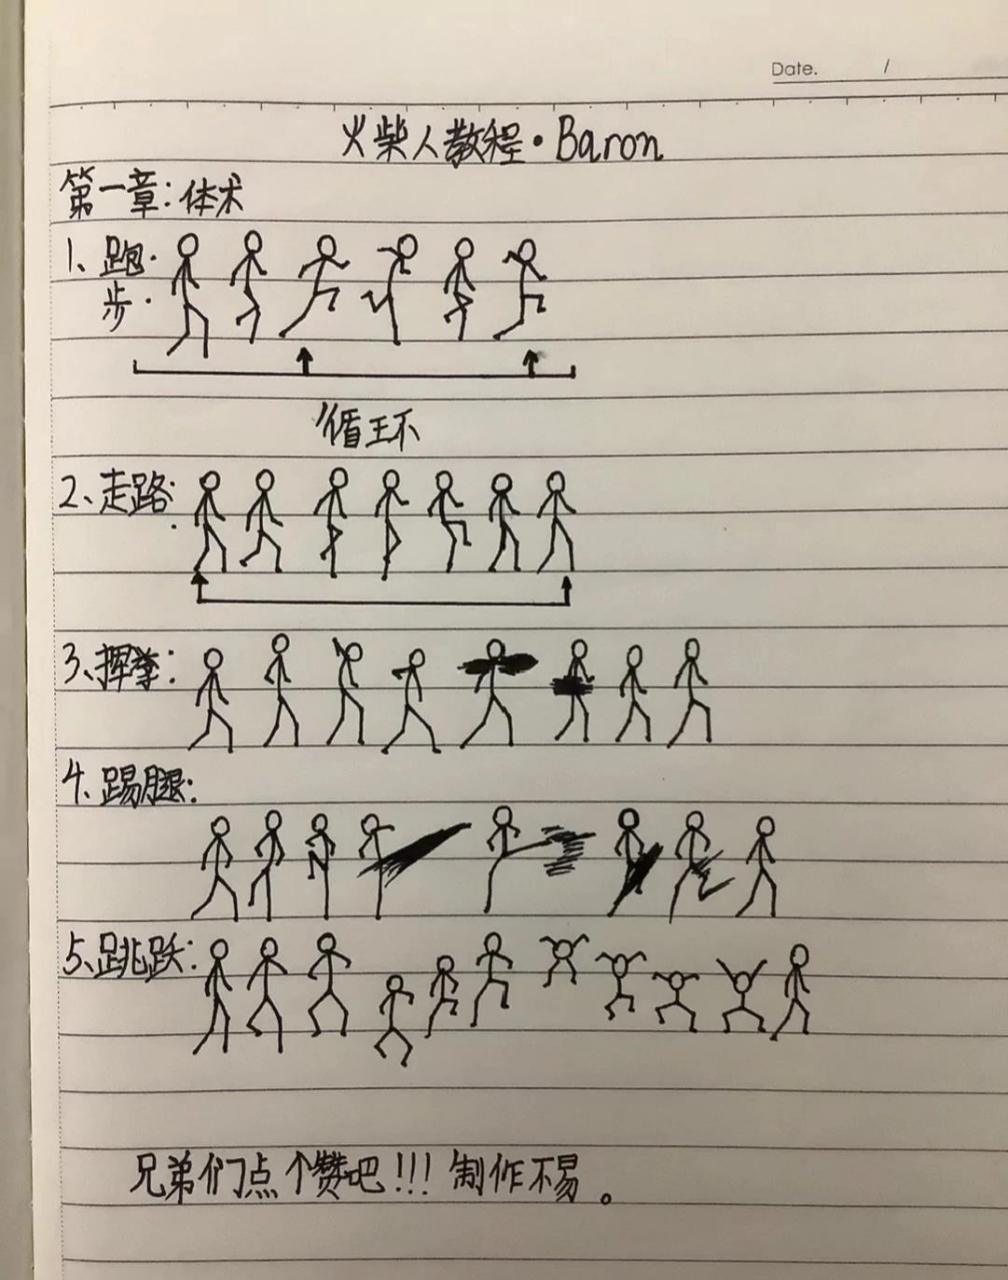 Date. /
火柴人教程·Baron
第一章:体术
1、跑步.
循环
2、走路:
3、挥拳:
4、踢腿:
5、跳跃:
兄弟们点个赞吧!!!制作不易。